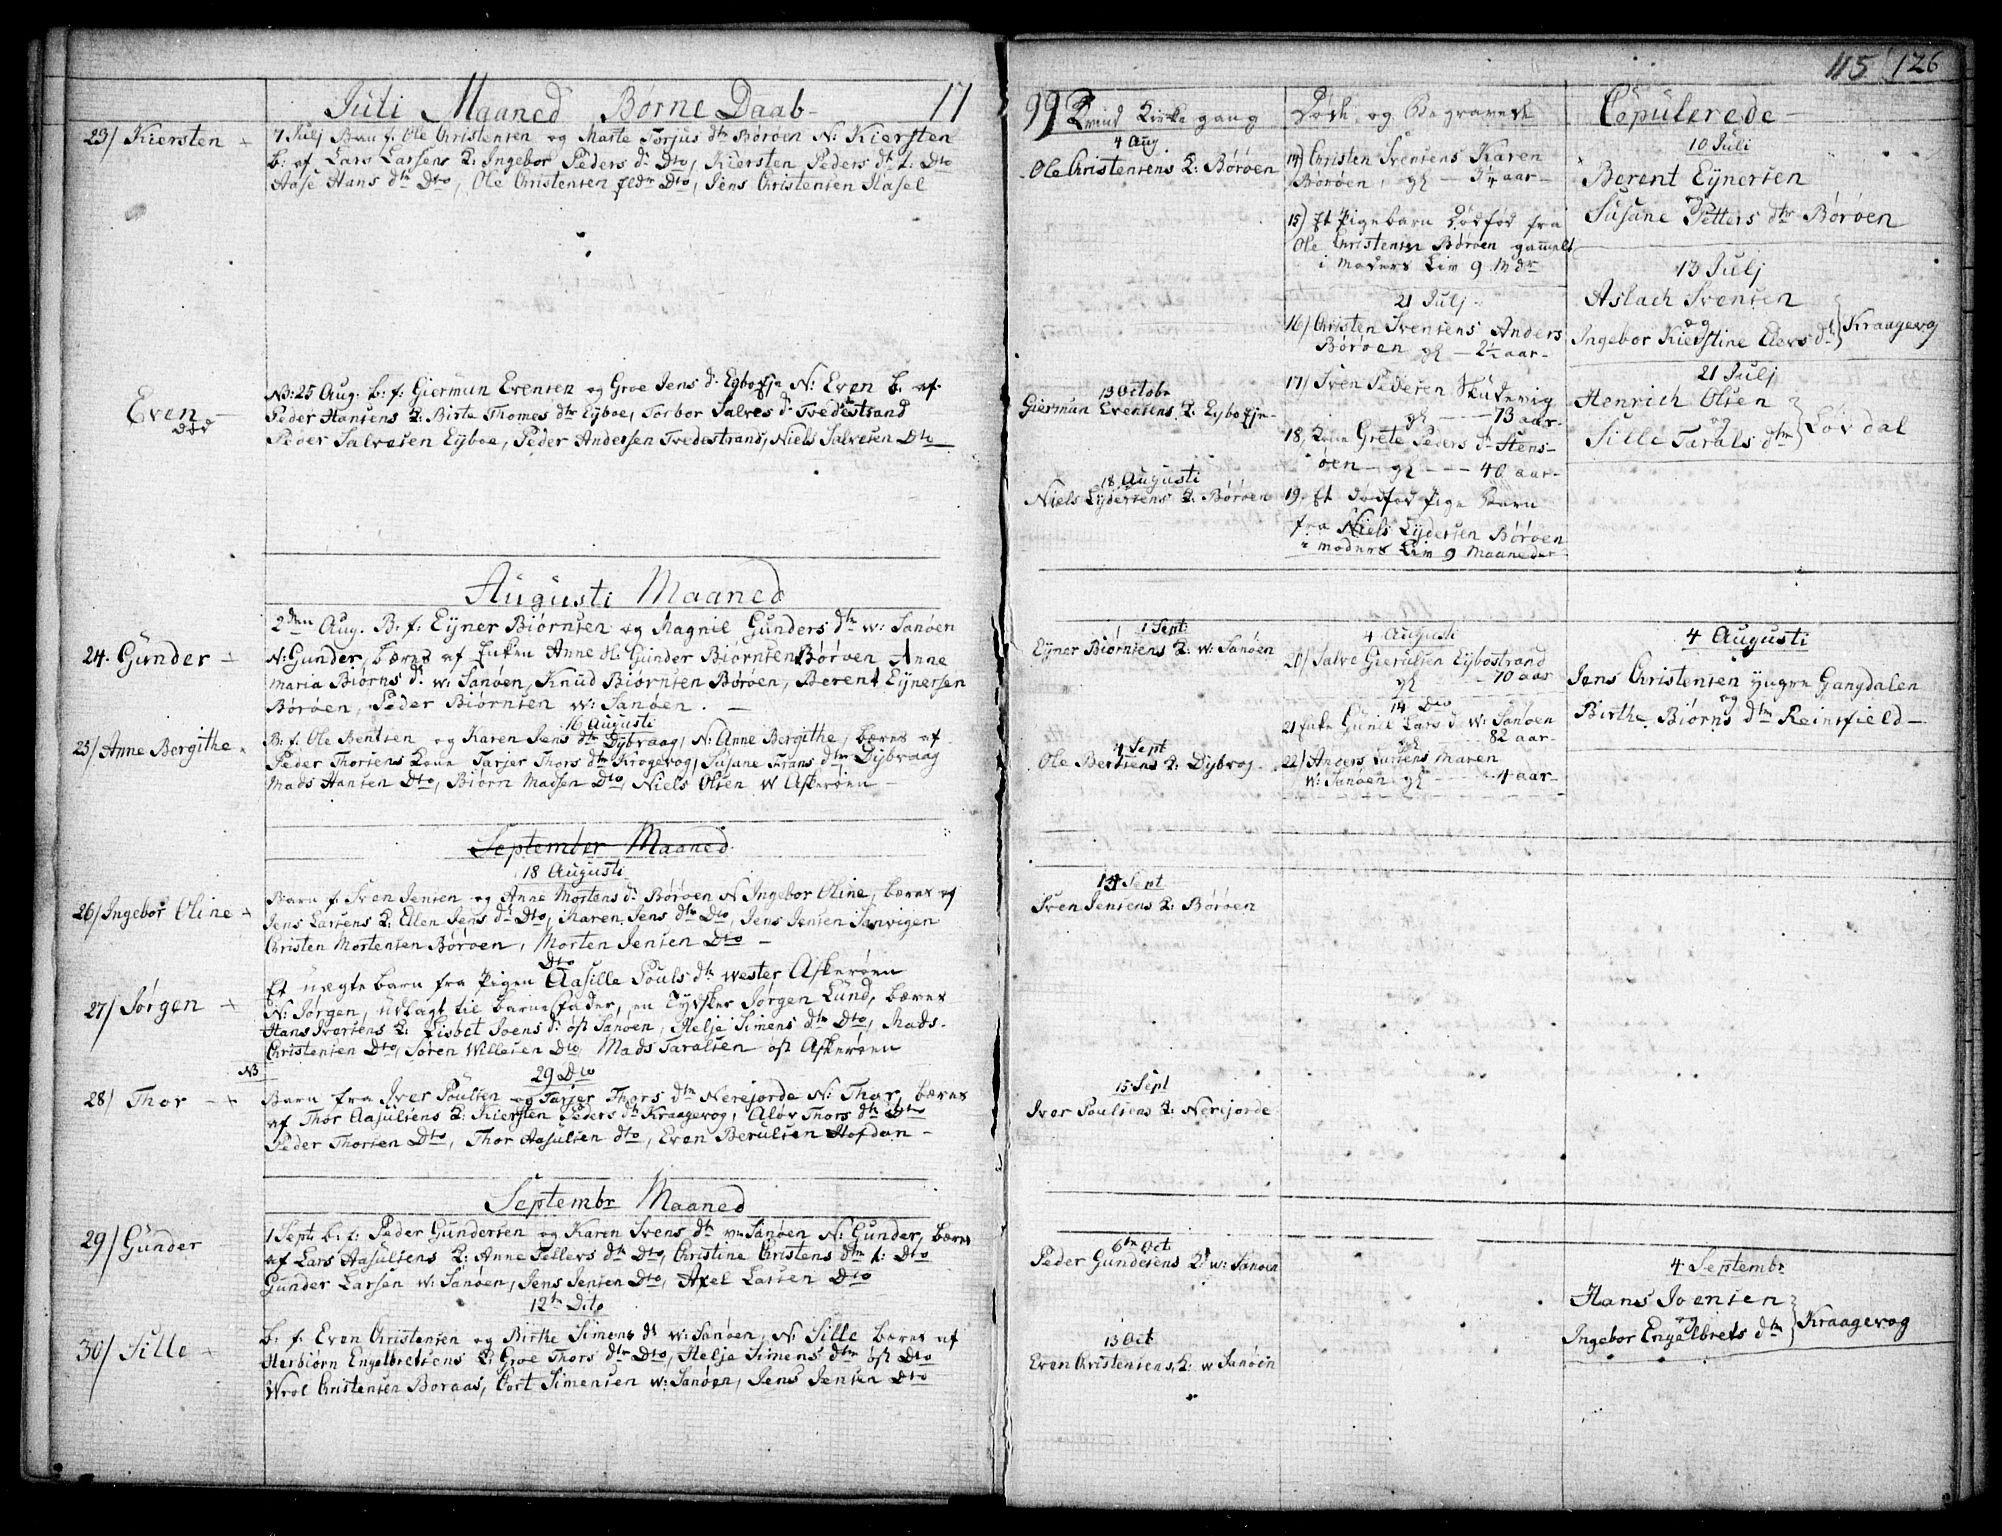 Juli Maaned Børne Daab 17
23/ Kiersten
7 Julj Barn f. Ole Christensen og Marte Torjus dtr Børøen N: Kiersten
b: af Lars Larsens K: Ingebor Peders d: Dto, Kiersten Peders dtr t: Dto
Aase Hans dtr Dto, Ole Christensen Dto, Jens Christensen Hasel
Even
NB: 25 Aug. b. f: Giermun Evensen og Groe Jens d: Eybo N: Even b. af
Peder Hansens K: Birte Thomes dtr Eyboe, Torbor Salves d: Tvedestrand
Peder Salvesen Eyboe, Peder Andersen Tvedestrand, Niels Salvesen Dto
Augusti Maaned
24. Gunder
2den Aug. B: f: Eyner Biørnsen og Magnil Gunders dtr w: Sanøen
N: Gunder, bæres af Enken Anne H: Gunder Biørnsen Børøen Anne
Maria Biørns d: w: Sanøen, Knud Biørnsen Børøen, Berent Eynersen
Børøen, Peder Biørnsen w: Sanøen.
16 Augusti
25/ Anne Bergithe
B: f: Ole Bentsen og Karen Jens dtr Dybvaag, N: Anne Bergithe, bæres af
Peder Thorsens Kone Tarjer Thors dtr Krogevog, Susane Frans dtr Dybvaag
Mads Hansen Dto, Biørn Madsen Dto, Niels Olsen W Askerøen
September Maaned
18 Augusti
26/ Ingebor Oline
Barn f: Sven Jensen og Anne Mortens d: Børøen N: Ingebor Oline, bæres af
Jens Larsens K: Ellen Jens d: Dto, Karen Jens dtr Dto, Jens Jensen Sanvigen
Christen Mortensen Børøen, Morten Jensen Dto
Dto
27/ Jørgen
Et uægte barn fra Pigen Aasille Pouls dtr Wester Askerøen
N: Jørgen, udlagt til barne fader, en Tydsker Jørgen Lund, bæres
Hans Iversens K: Lisbet Joens d: øst Sanøen, Helje Simens dtr Dto, Mads
Christensen Dto, Søren Willesen Dto Mads Taralsen øst Askerøen
NB 29 Dto
28/ Thor
Barn fra Iver Poulsen og Tarjer Thors dtr Nerejorde N: Thor, bæres
af Thor Aasulsens K: Kiersten Peders dtr Kraagevog, Aløv Thors dtr Dto
Peder Thorsen Dto, Thor Aasulsen dto, Even Berulsen Hofdan
Septembr Maaned
29/ Gunder
1 Sept: b: f: Peder Gundersen og Karen Svens dtr w: Sanøen N: Gunder, bæres
af Lars Aasulsens K: Anne Tellevs dtr Dto, Christine Christens dtr t: Dto
Gunder Larsen w: Sanøen, Jens Jensen Dto, Axel Larsen Dto
12te Dito
30/ Sille
b: f: Even Christensen og Birthe Simens dt w: Sanøen, N: Sille bæres af
Herbiørn Engelbretsens K: Groe Thors dtr Dto, Helje Simens dtr øst Dto
Wrol Christensen Boraas, Cort Simensen w: Sanøen, Jens Jensen Dto
115 126
99 Qvind Kirke gang
4 Aug
Ole Christensens K: Børøen
13 Octobr
Gierman Evensens K: Eybo
18 Augusti
Niels Lydersens K: Børøen
1 Sept:
Eyner Biørnsens K: w: Sanøen
4 Sept
Ole Bentsens K: Dybvog
Sept
Sven Jensens K: Børøen
15 Sept
Iver Poulsens K: Nerejorde
6te Oct
Peder Gundesens K: w: Sanøen
13 Oct
Even Christensens K: w Sanøen
Døde og Begravede
14) Christen Svensens Karen
Børøen, gl — 3 1/4 aar
15) Et Pigebarn dødfød fra
Ole Christensen Børøen gammelt
i moders Liv 9 Mdr
21 Julj
16/ Christen Svensens Anders
Børøen gl — 2 1/4 aar
17/ Sven Pedersen Skudevig
gl — 73 aar
18, Kone Grete Peders d: Stens-
øen gl — 40 aar
19. Et dødfød Pige Barn
fra Niels Lydersen Børøen
i moders Liv 9 Maaneder
4 Augusti
20/ Salve Gierulsen Eybostrand
gl — 70 aar
14 Dto
21 Enke Gunil Lars d: w: Sanøen
gl 82 aar
22/ Anders Larsens Maren
w: Sanøen gl — 4 aar
Copulerede
10 Juli
Berent Eynersen
og
Susane Petters dtr Børøen
13 Julj
Aslach Svensen
og
Ingebor Kierstine Elevs d: } Kraagevog
21 Julj
Henrich Olsen
og
Sille Tarals dtr } Løvdal
4 Augusti
Jens Christensen yngre Gangdalen
og
Birthe Biørns dtr Reinsfield
4 Septembr
Hans Joensen
og
Ingebor Engelbrets dtr } Kraagevog